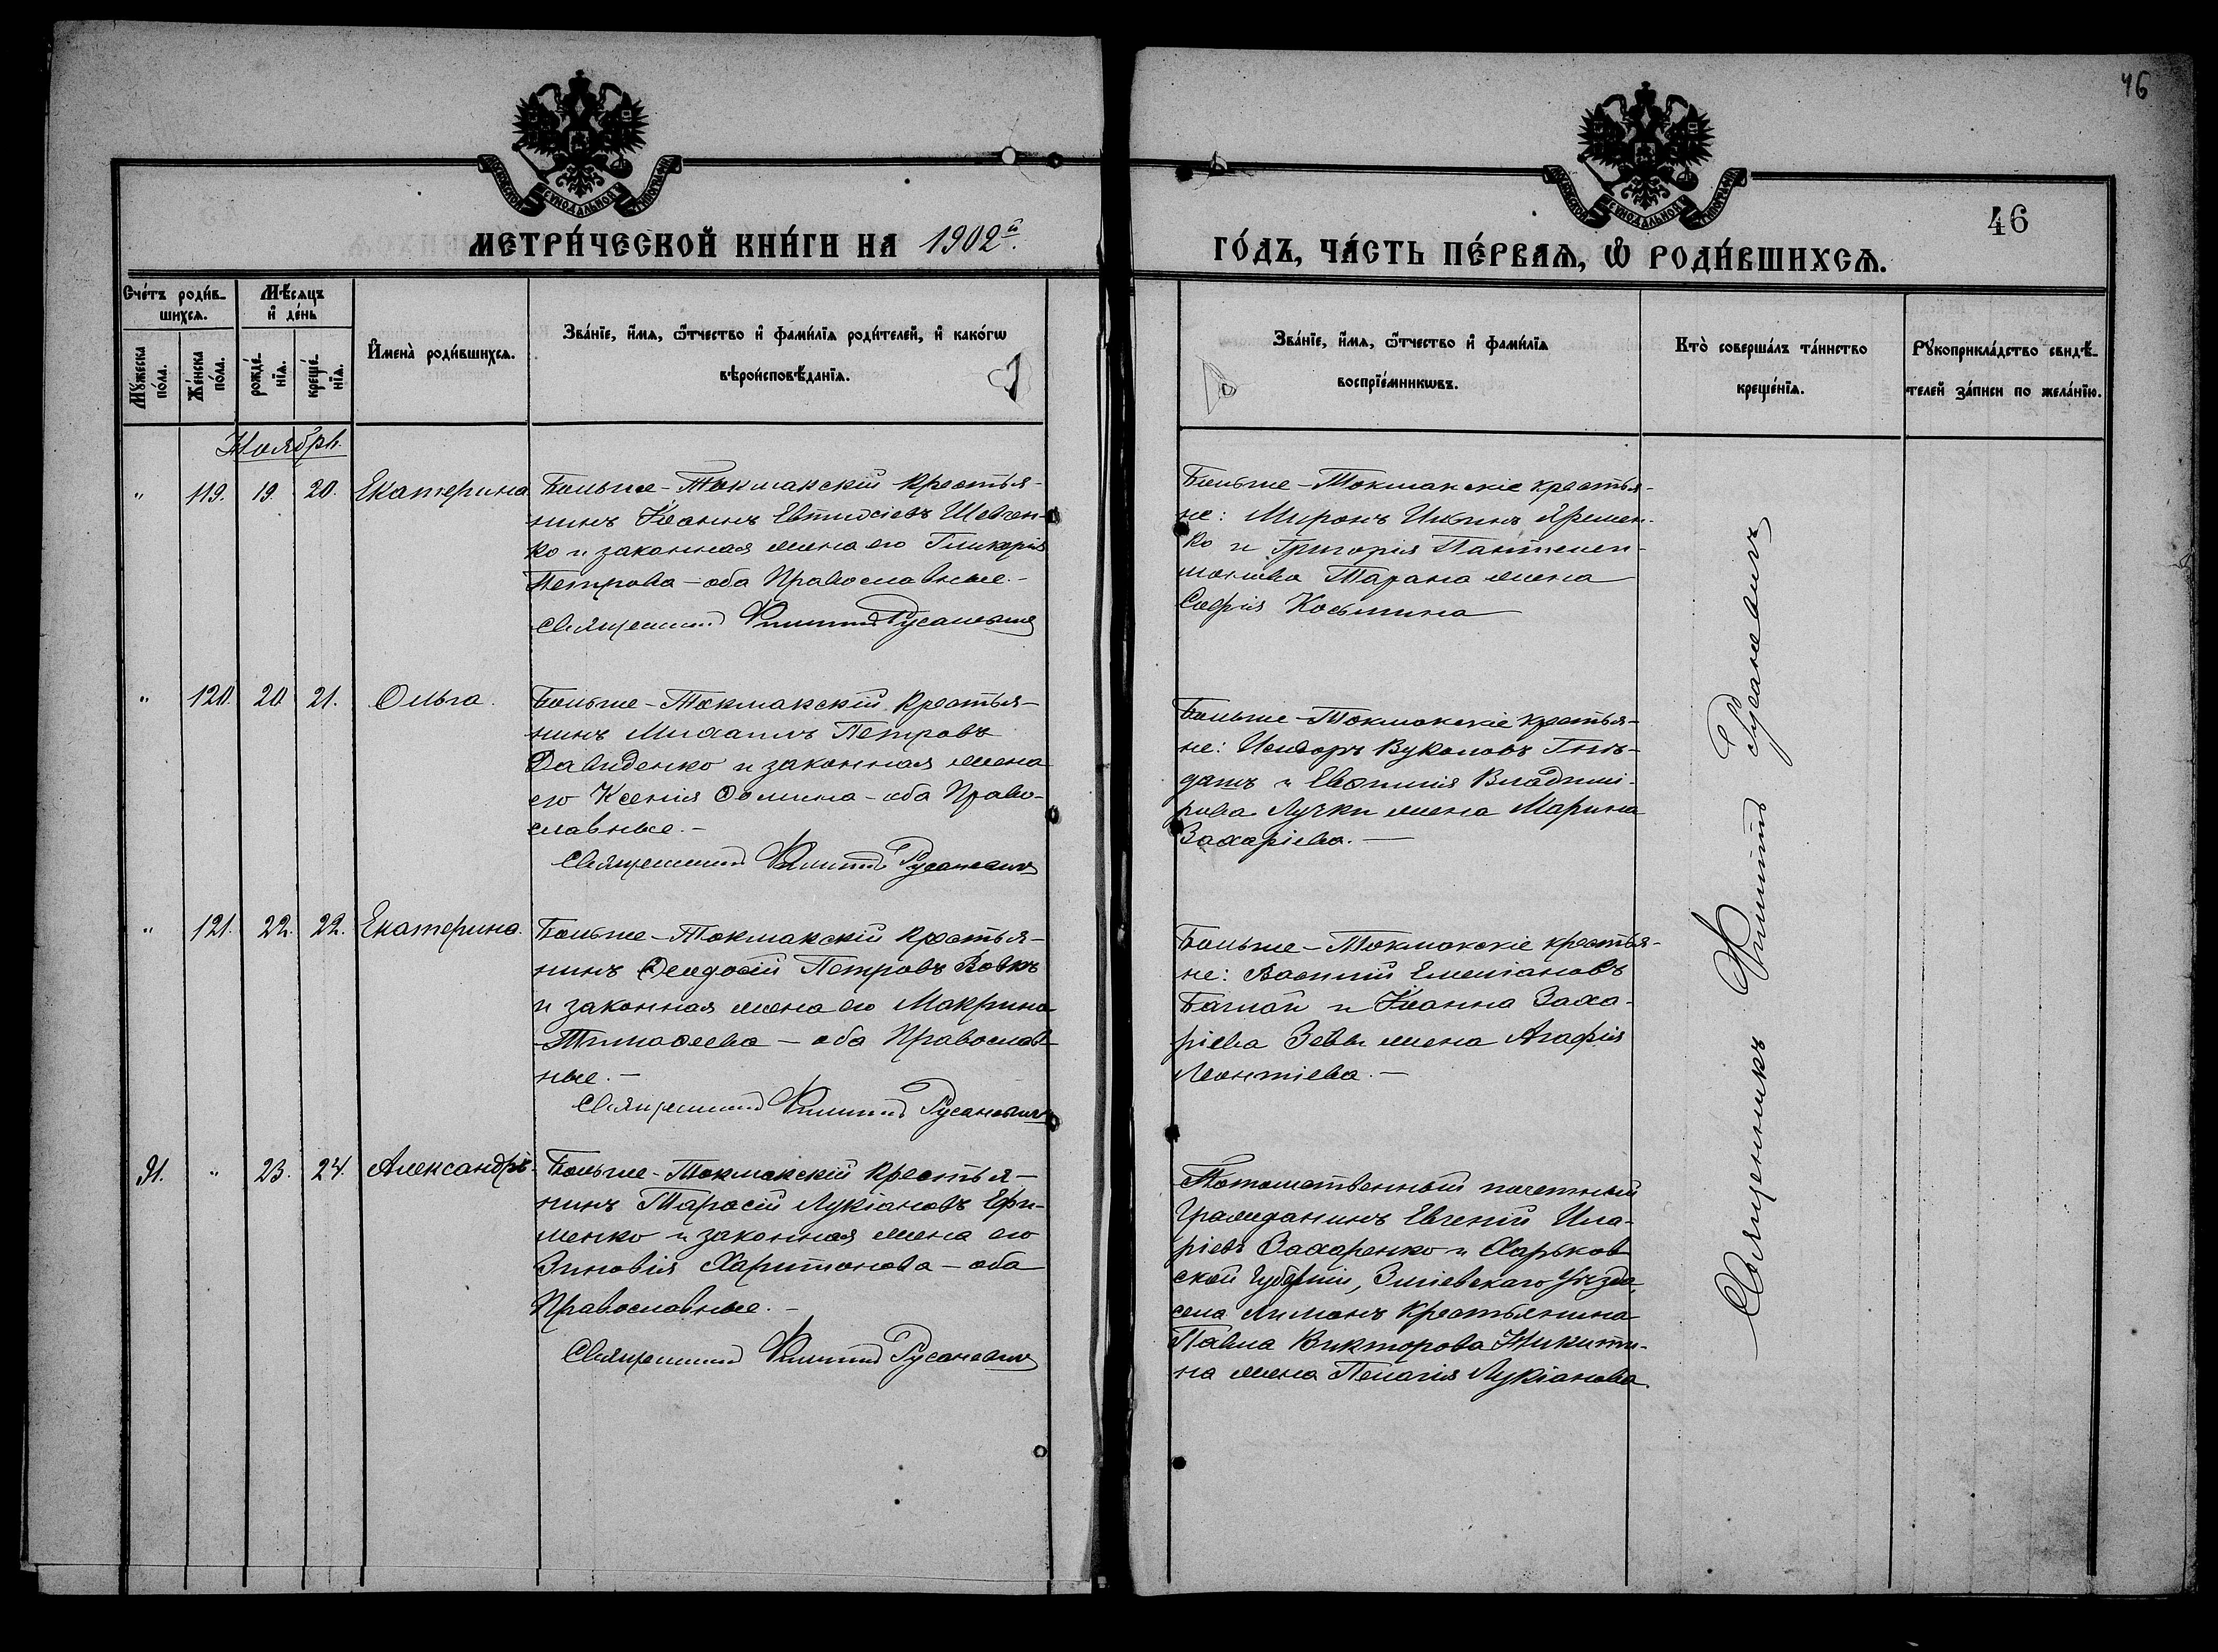 46
МОСКОВСКОЙ СѴНОДАЛЬНОЙ ТИПОГРАФІИ
МОСКОВСКОЙ СѴНОДАЛЬНОЙ ТИПОГРАФІИ
46
МЕТРИ́ЧЕСКОЙ КНИ́ГИ НА 1902й.
ГО́ДЪ, ЧА́СТЬ ПЕ́РВАѦ, Ѡ҆ РОДИ́ВШИХСѦ.
Сче́тъ роди́в-
шихсѧ.
Мѣ́сѧцъ
и҆ де́нь
Мꙋ́жеска
по́ла.
Же́нска
по́ла.
рожде́-
нїѧ.
креще́-
нїѧ.
И҆мена̀ роди́вшихсѧ.
Зва́нїе, и҆́мѧ, ѻ҆́тчество и҆ фами́лїѧ роди́телей, и҆ како́гѡ
вѣроисповѣ́данїѧ.
Зва́нїе, и҆́мѧ, ѻ҆́тчество и҆ фами́лїѧ
воспрїе́мникѡвъ.
Кто̀ соверша́лъ та́инство
креще́нїѧ.
Рꙋкоприкла́дство свидѣ́-
телей за́писи по жела́нїю.
Ноябрь.
" 119. 19. 20. Екатерина
Больше-Токмакскій крестья-
нинъ Іоаннъ Евтихіевъ Шевчен-
ко и законная жена его Гликерія
Петрова - оба Православные.-
Священникъ Филиппъ Русаневичъ
Больше-Токмакскіе крестья-
не: Миронъ Яремен-
ко и Григорія Пантелей-
монова Тарана жена
Софія Косьмина
" 120. 20. 21. Ольга.
Больше-Токмакскій крестья-
нинъ Михаилъ Петровъ
Давиденко и законная жена
его Ксенія Ѳомина - оба Право-
славные.-
Священникъ Филиппъ Русаневичъ
Больше-Токмакскіе крестья-
не: Исидоръ Вуколовъ Гнѣ-
дашъ и Евѳимія Владимі-
рова Лучки жена Марина
Захаріева.-
" 121. 22. 22. Екатерина.
Больше-Токмакскій крестья-
нинъ Ѳеодосій Петровъ Вовкъ
и законная жена его Макрина
Тимоѳеева - оба Православ-
ные.-
Священникъ Филиппъ Русаневичъ
Больше-Токмакскіе крестья-
не: Василій Емеліановъ
Баглай и Іоанна Заха-
ріева Зевы жена Агафія
Леонтіева.-
91. " 23. 24. Александръ.
Больше-Токмакскій крестья-
нинъ Тарасій Лукіановъ Ефи-
менко и законная жена его
Зиновія Харитонова - оба
Православные.-
Священникъ Филиппъ Русаневичъ
Потомственный почетный
гражданинъ Евгеній Ила-
ріевъ Захаренко и Харьков-
ской губерніи, Зміевскаго уѣзда,
села Лиманъ крестьянина
Павла Викторова Никити-
на жена Пелагія Лукіанова.
Священникъ Филиппъ Русаневичъ